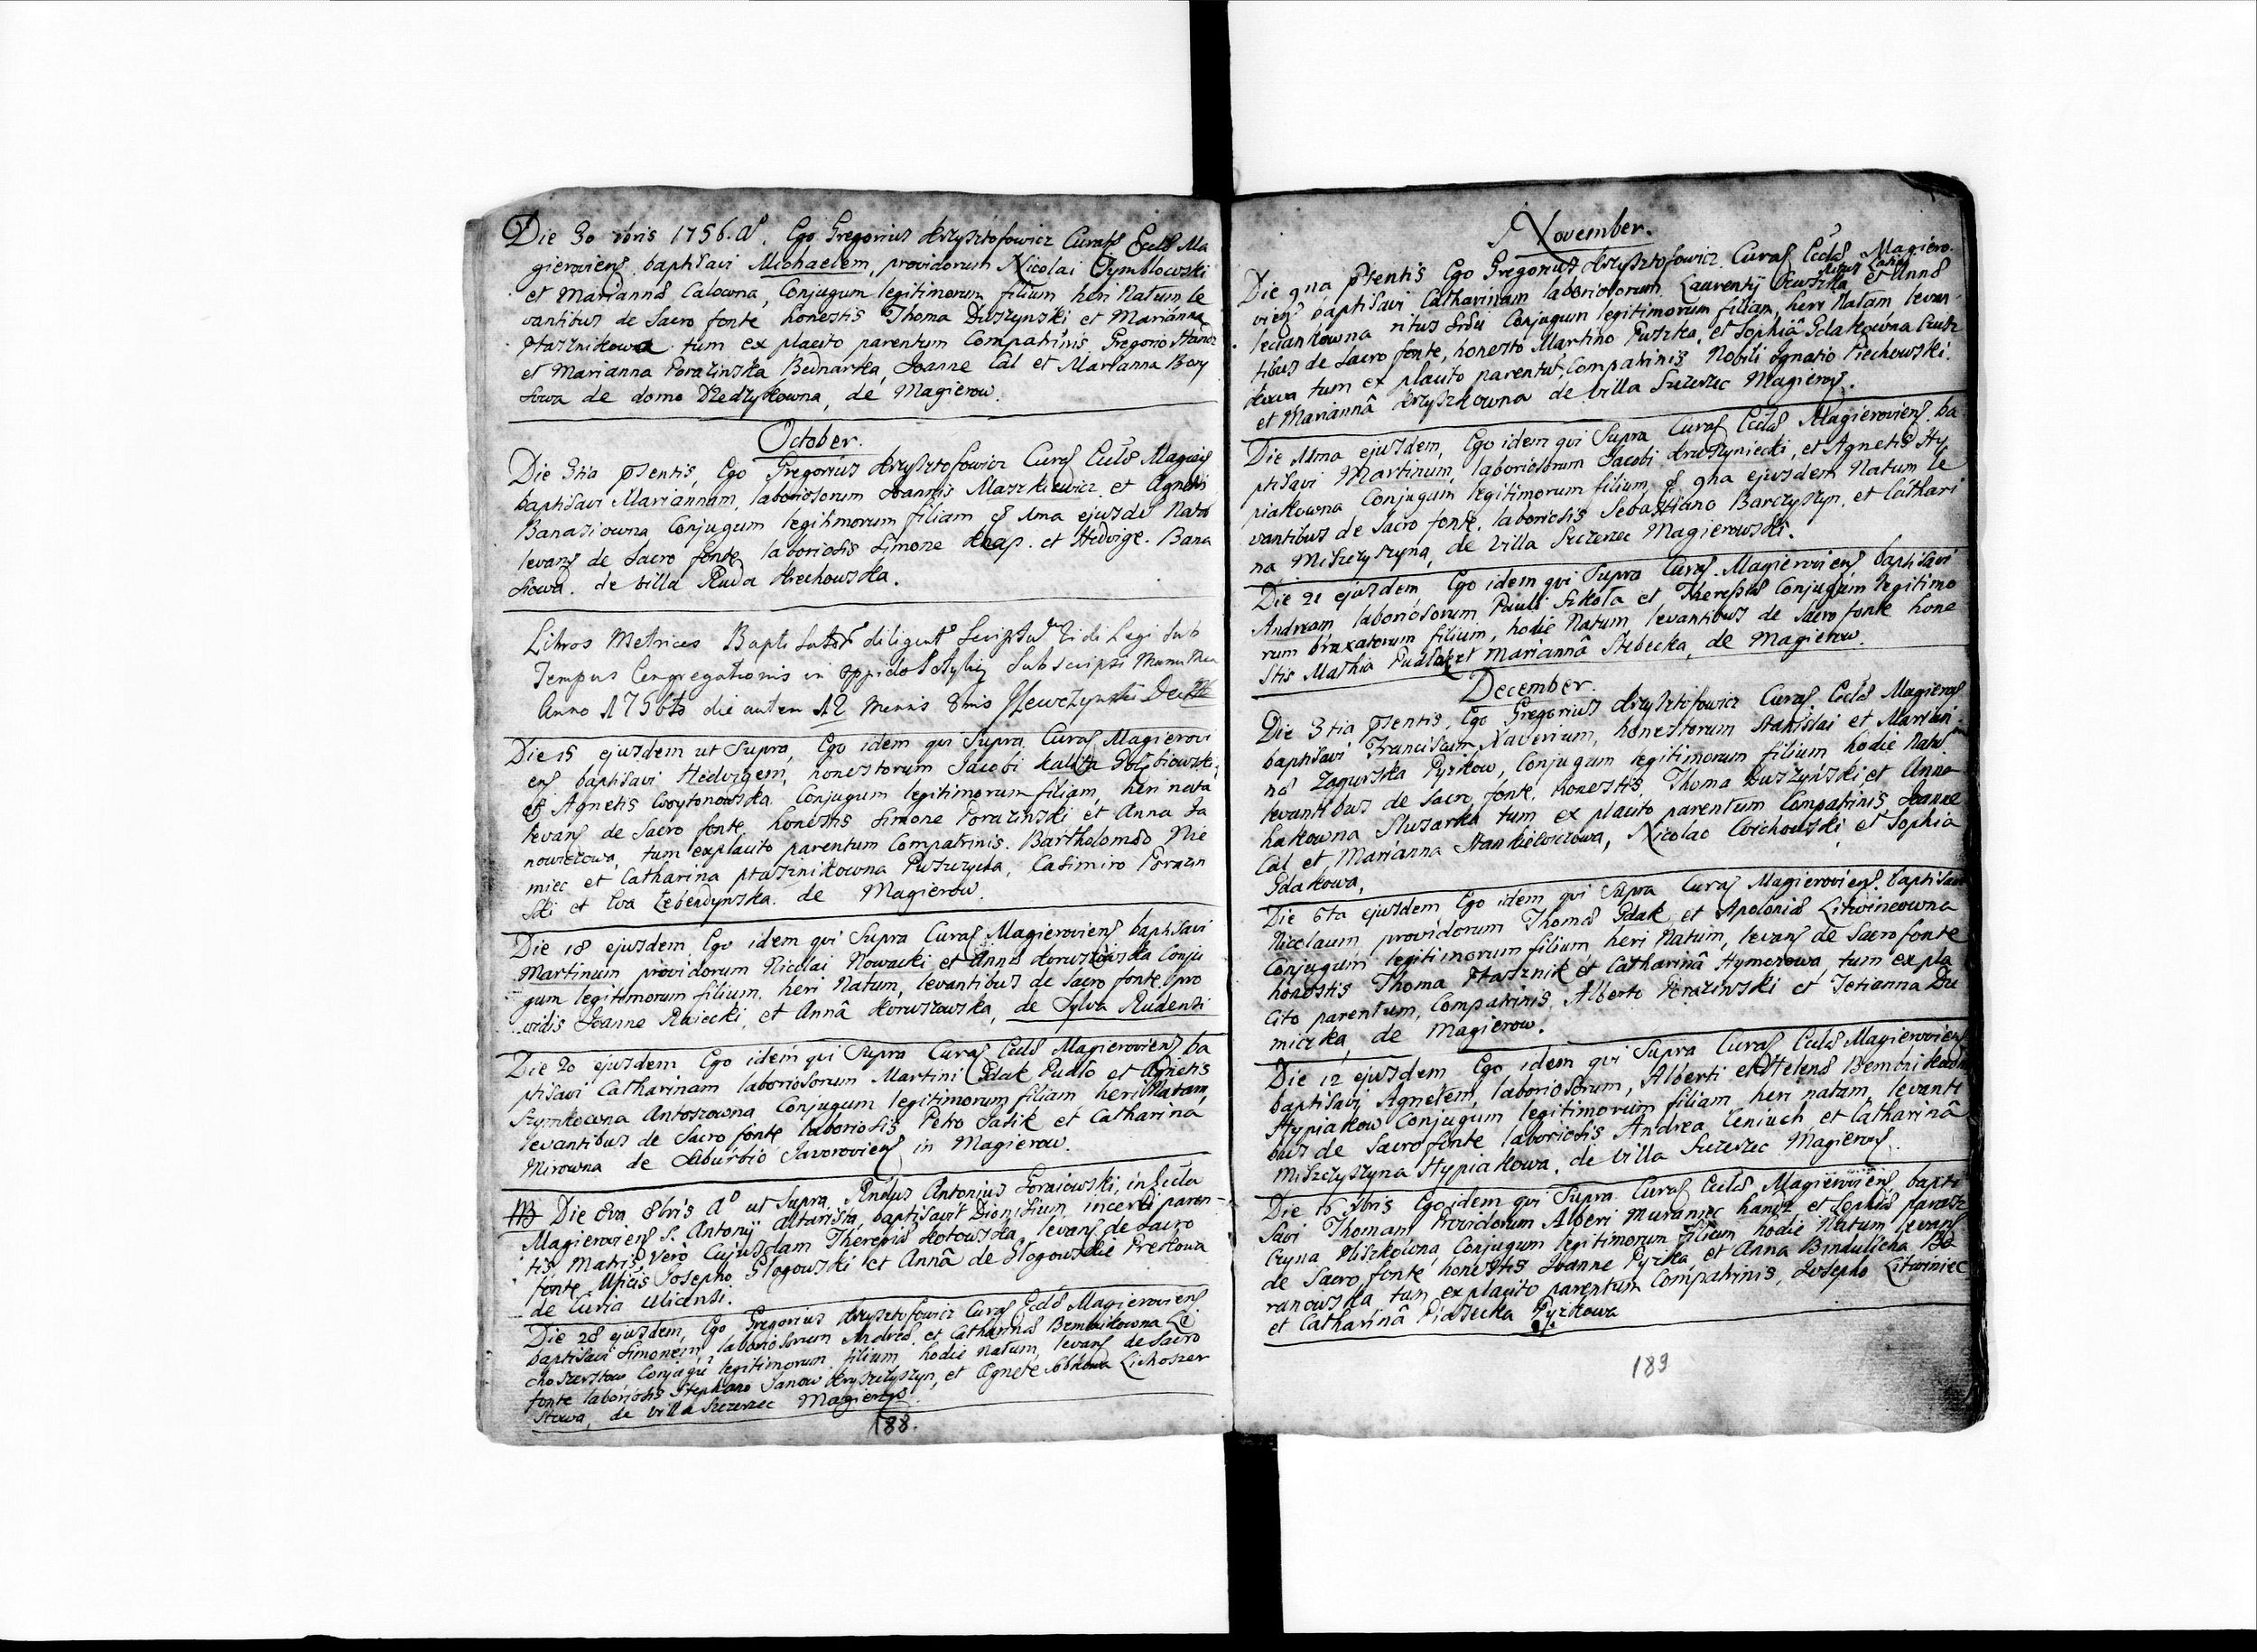 Die 30 7bris 1756. Aº. Ego Gregorius Krzysztofowicz Curatꝰ Eccłæ Ma
gieroviens baptisavi Michaelem, providorum Nicolai Cymblowski
et Mariannæ Calowna, Conjugum legitimorum filium heri Natum le
vantibus de Sacro fonte honestis Thoma Duszynski et Marianna
Ptasznikowa tum ex placito parentum Compatrinis Gregorio
et Marianna Porazinska Bednarka, Joanne Cal et Marianna
de domo de Magierow.
October.
Die 3tia pſentis, Ego Gregorius Krzysztofowicz Curaꝭ Eccłæ Magierꝭ
baptisavi Mariannam, laboriosorum Joannis Maszkiewicz et Agnetis
Banasiowna Conjugum legitimorum filiam ejusdē
levanꝭ de Sacro fonte laboriosis Simone Knap. et Hedvige. Bana
siowa. de villa Ruda
Libros Metrices diligentʳ Vidi Legi sub
Tempus Congregationis in oppido Subscripsi Manu Mea
Anno 1756to die autem 12 Mensis 8bris
Die 15 ejusdem ut Supra, Ego idem qui Supra Curaꝭ Magierovi
enꝭ baptisavi Hedvigem, honestorum Jacobi Kalita
et Agnetis Woytonowska Conjugum legitimorum filiam, heri nata
levanꝭ de Sacro fonte honestis Simone Porazinski et Anna Ja
nowiczowa, tum ex placito parentum Compatrinis. Bartholomæo Nie
miec et Catharina Ptasznikowna Casimiro Porazin
ski et Eva Żebendynska. de Magierow.
Die 18 ejusdem Ego idem qui Supra Curaꝭ Magierovienꝭ baptisavi
Martinum providorum Nicolai Nowacki et Annæ Conju
gum legitimorum filium. heri Natum, levantibus de Sacro fonte pro
vidis Joanne Raiecki, et Annâ Koruszowska, de Sylva Rudensi
Die 20 ejusdem Ego idem qui Supra Curaꝭ Eccłæ Magierovienꝭ ba
ptisavi Catharinam laboriosorum Martini Gdak Pudło et Agnetis
Szymkowna Antoszowna Conjugum legitimorum filiam heri Natam,
levantibus de Sacro fonte laboriosis Petro Sasik et Catharina
Mirowna de Suburbio Javorovienꝭ in Magierow.
NB Die 8va 8bris Aº ut Supra, Rndus Antonius Goraiowski, in Eccła
Magierovienꝭ S. Antonij altarista, baptisavit Dionisium, incerti paren
tis, Matris Vero Cujusdam Theresiæ Kotowska, levanꝭ de Sacro
fonte Josepho Głogowski et Annâ de Głogowskie
de Curia Ulicensi.
Die 28 ejusdem, Ego Gregorius Krzysztofowicz Curaꝭ Eccłæ Magierovienꝭ
baptisavi Simonem, laboriosorum Andreæ et Catharinæ Bembnikowna Li
choszerstow Conjugū legitimorum filium hodie natum, levanꝭ de Sacro
fonte laboriosis Stephano Janow et Agnete Lichoszer
stowa, de villa Szczerzec Magierow
188.
November.
Die 9na pſentis Ego Gregorius Krzysztofowicz Curaꝭ Eccłæ Magiero
vienꝭ baptisavi Catharinam laboriosorum Laurentij Puszka ritus Latini et Annæ
ritus Conjugum legitimorum filiam, heri Natam, levan
tibus de Sacro fonte, honesto Martino Puszka, et Sophiâ Gdakowna
tum ex placito parentū Compatrinis Nobili Ignatio Piechowski.
et Mariannâ de villa Szczerzec Magierowꝭ.
Die 11ma ejusdem, Ego idem qui Supra Curaꝭ Eccłæ Magierovienꝭ ba
ptisavi Martinum, laboriosorum Jacobi Kruszyniecki, et Agnetis Hy
piakowna Conjugum legitimorum filium 9na ejusdem Natum le
vantibus de Sacro fonte, laboriosis Sebastiano Barczyszyn, et Cathari
na Miszczyszyna, de Villa Szczerzec Magierowski.
Die 21 ejusdem, Ego idem qui Supra Curaꝭ Magierovienꝭ baptisavi
Andream laboriosorum Pauli Sikoła et Theresiæ Conjugum legitimo
rum braxatorum filium, hodie Natum levantibus de Sacro fonte hone
stis Mathia Pudlak et Mariannâ Stebecka, de Magierow.
December.
Die 3tia pſentis, Ego Gregorius Krzysztofowicz Curaꝭ Eccłæ Magierowꝭ
baptisavi Franciscum Xaverium, honestorum Stanislai et Marian
næ Zagurska Pyzikow, Conjugum legitimorum filium hodie Natū
levantibus de Sacro fonte, honestis, Thoma Duszyński, et Anna
hakowna Slusarka tum ex placito parentum Compatrinis, Joanne
Cal et Marianna Stankiewiczowa, Nicolao Woichowski, et Sophia
Gdakowa,
Die 6ta ejusdem Ego idem qui Supra Curaꝭ Magierovienꝭ. baptisavi
Nicolaum providorum Thomæ Gdak et Apoloniæ Litwincowna
Conjugum legitimorum filium, heri Natum, levanꝭ de Sacro fonte
honestis Thoma Ptasznik et Catharinâ Hymerowa, tum ex pla
cito parentum, Compatrinis. Alberto Porazinski et Tetianna Du
miczka, de Magierow.
Die 12 ejusdem Ego idem qui Supra Curaꝭ Eccłæ Magierovienꝭ
baptisavi Agnetem, laboriosorum, Alberti et Helenæ
Hypiakow Conjugum legitimorum filiam heri natam, levanti
bus de Sacro fonte laboriosis Andrea Ceniuch et Catharinâ
Miszczyszyna Hypiakowa, de villa Szczerzec Magierowꝭ.
Die 16 Xbris Ego idem qui Supra Curaꝭ Eccłæ Magierovienꝭ, bapti
savi Thomam, Providorum Alberi Muraniec et Sophiæ
Miszkowna, Conjugum legitimorum filium hodie Natum levanꝭ
de Sacro fonte, honestis Joanne Pyzka, et Anna Bindulicha
tum ex placito parentum Compatrinis, Josepho Litwiniec
et Catharinâ Piasecka Pyzikowa
189